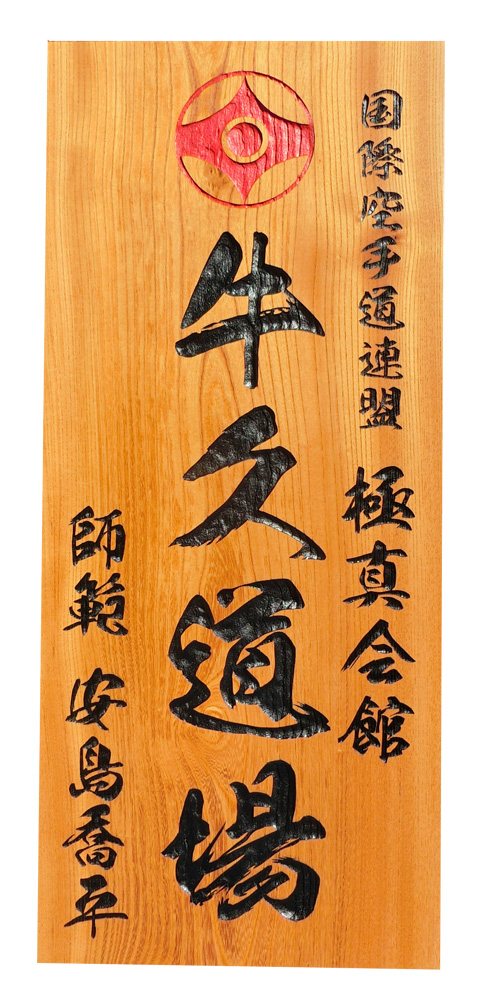 国際空手道連盟 極真会館
牛久道場
師範 安島喬平